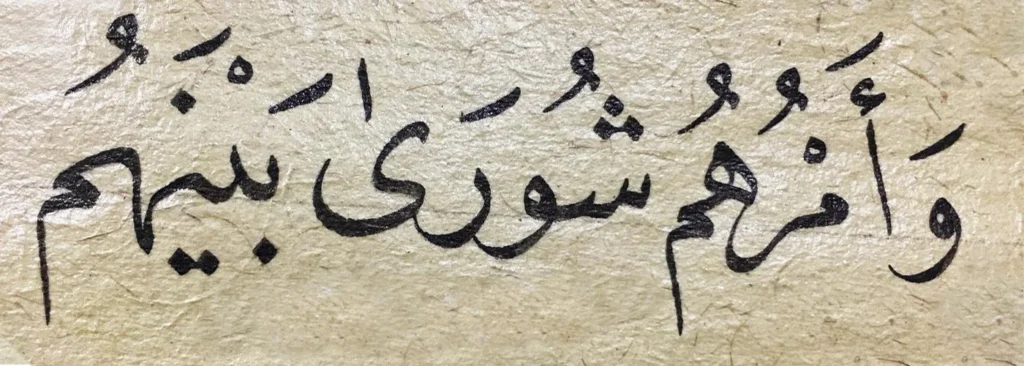 وَأَمْرُهُم شُورَىٰ بَيْنَهُم